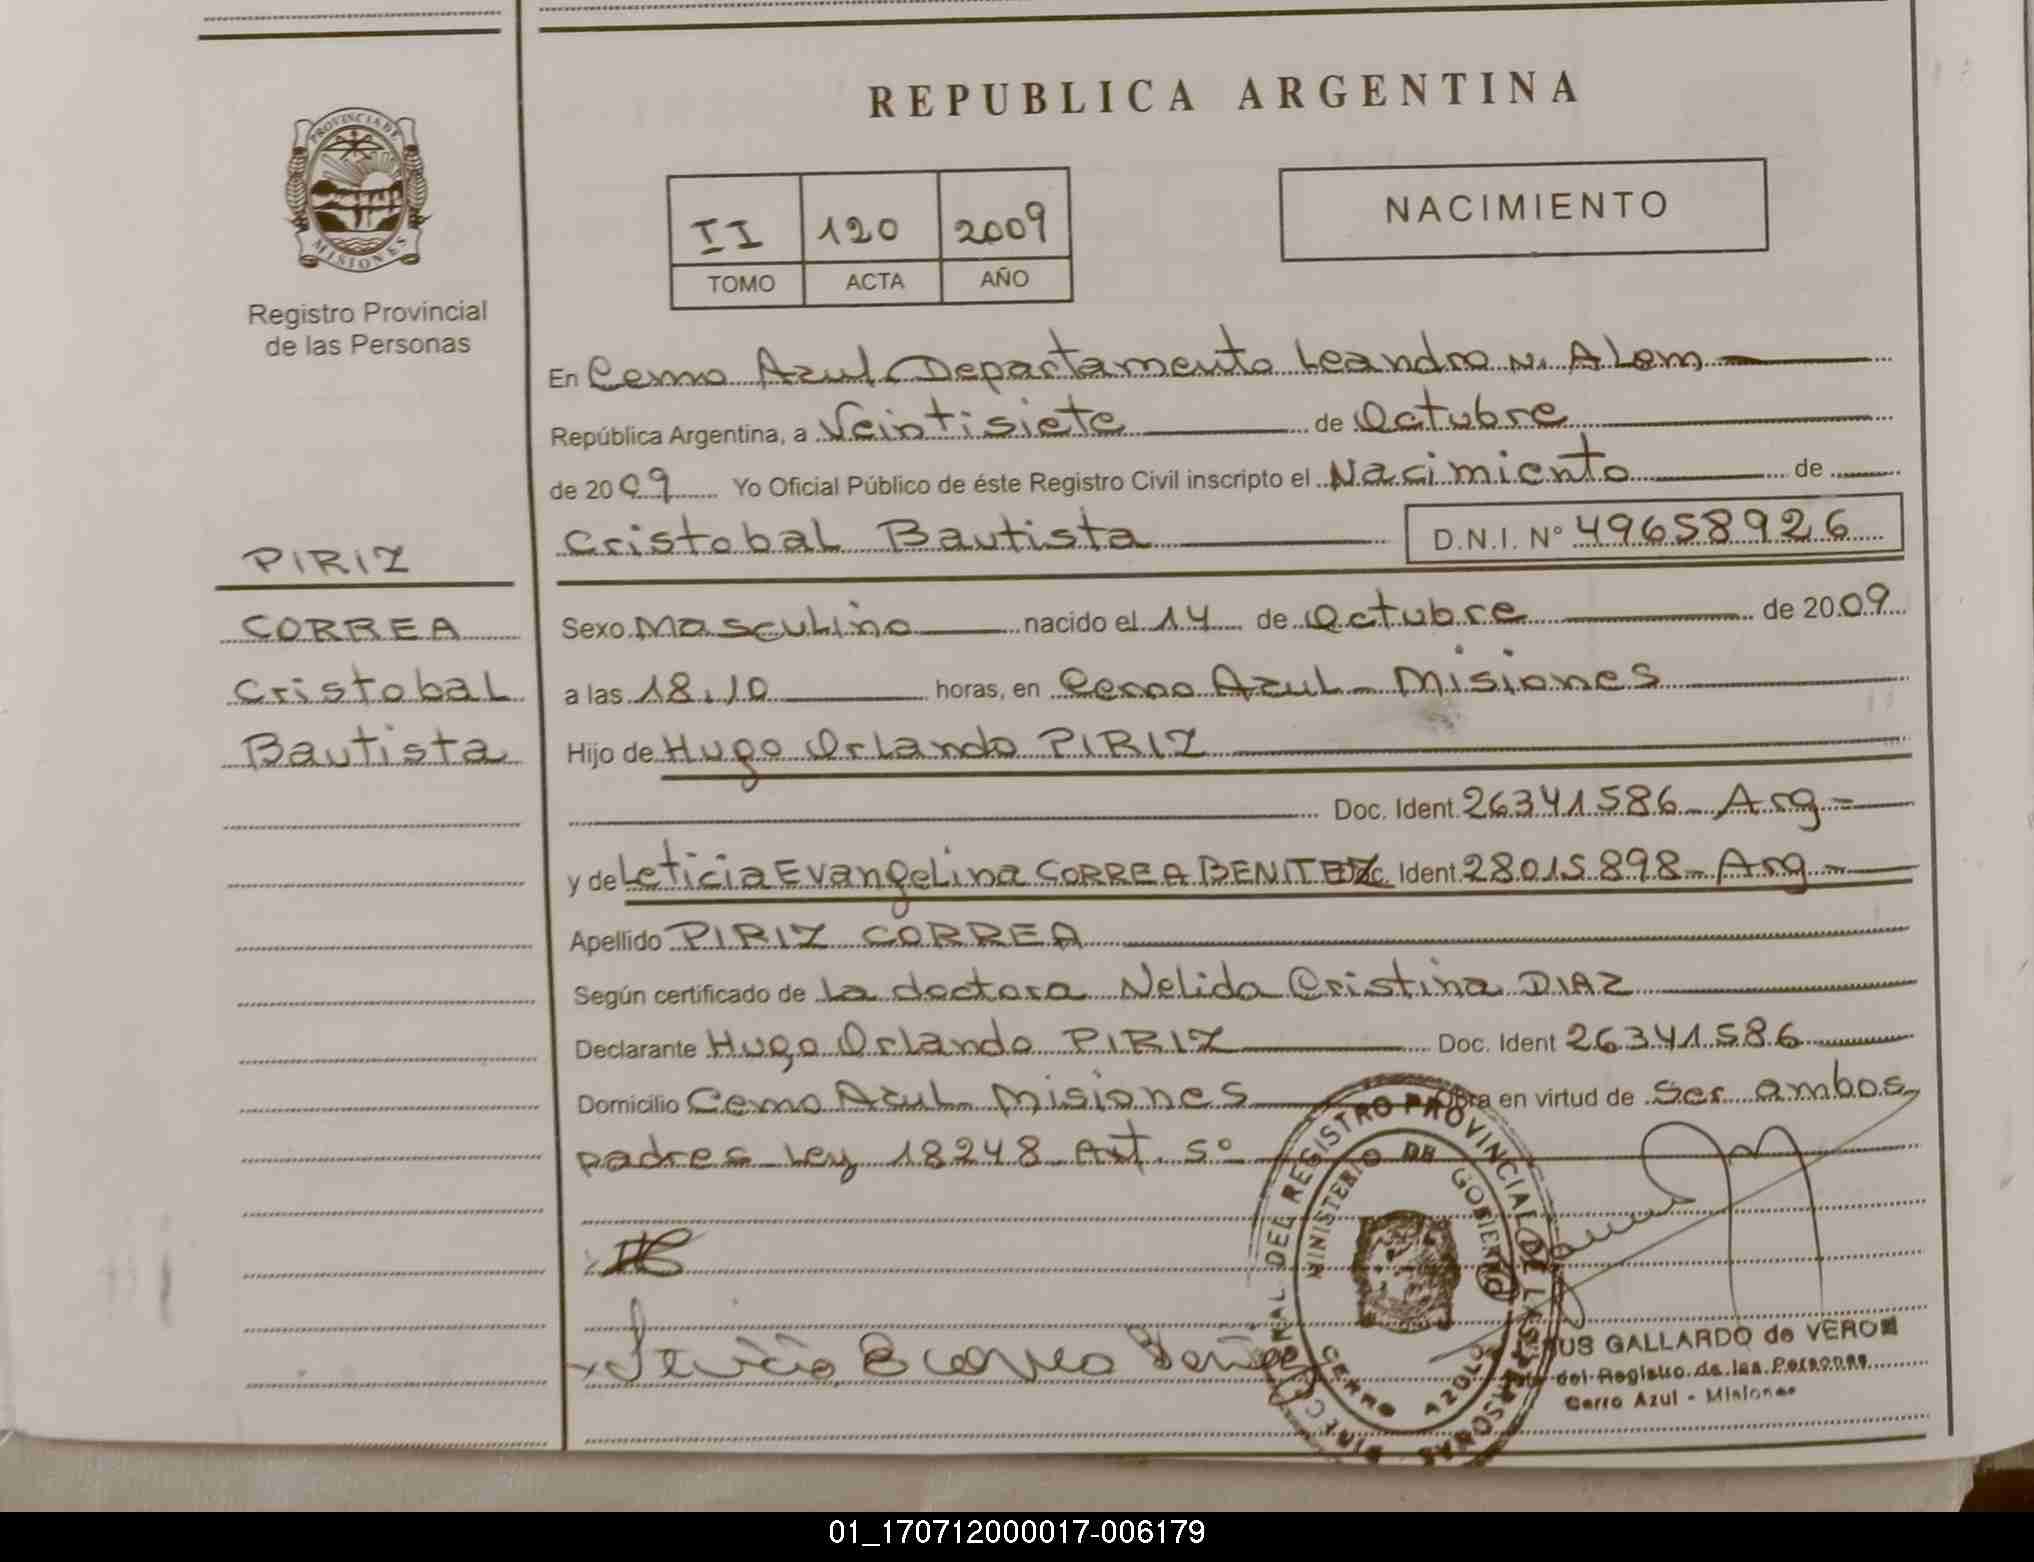 REPUBLICA ARGENTINA
PROVINCIA DE
MISIONES
Registro Provincial
de las Personas
II 120 2009
TOMO ACTA AÑO
NACIMIENTO
En Cerro Azul Departamento Leandro N. Alem
República Argentina, a Veintisiete de Octubre
de 2009 Yo Oficial Público de éste Registro Civil inscripto el Nacimiento de
Cristobal Bautista D.N.I. Nº 49658926
PIRIZ
CORREA
Cristobal
Bautista
Sexo Masculino nacido el 14 de Octubre de 2009
a las 18.10 horas, en Cerro Azul - Misiones
Hijo de Hugo Orlando PIRIZ
Doc. Ident. 26341586 - Arg -
y de Leticia Evangelina CORREA BENITEZ Doc. Ident. 28015898 - Arg -
Apellido PIRIZ CORREA
Según certificado de la doctora Nelida Cristina DIAZ
Declarante Hugo Orlando PIRIZ Doc. Ident 26341586
Domicilio Cerro Azul - Misiones Obra en virtud de ser ambos
padres Ley 18248 Art. 5º
DEL REGISTRO PROVINCIAL DE LAS PERSONAS
MINISTERIO DE GOBIERNO
CERRO AZUL
GALLARDO de VERON
del Registro de las Personas
Cerro Azul - Misiones
01_170712000017-006179